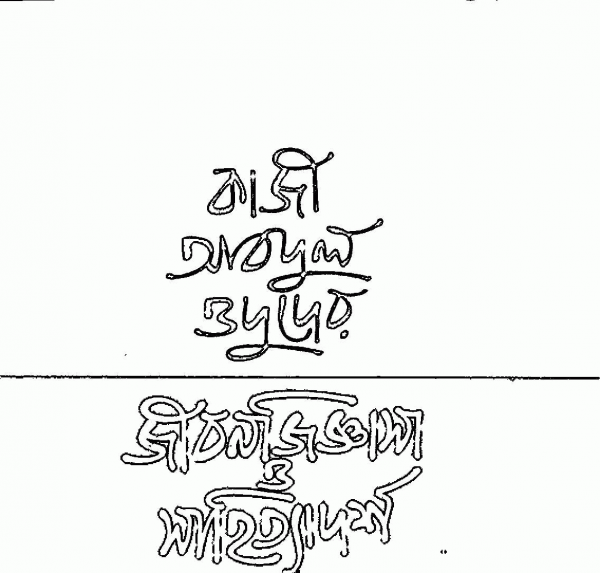 কাজী
আবদুল
ওদুদের
জীবনজিজ্ঞাসা
ও
সাহিত্যাদর্শ